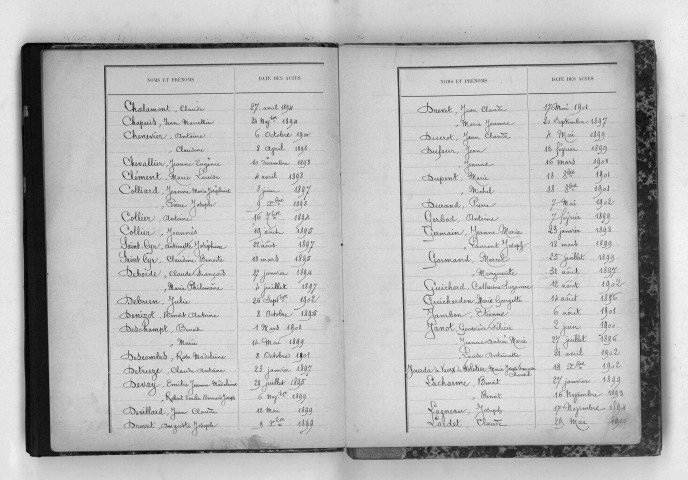 NOMS ET PRÉNOMS DATE DES ACTES
Chalamont, Claude 27 avril 1894
Chapuis, Jean Marcellin 1894
Chenevier, Antoine 6 Octobre
" Claudine 8 Avril
Chevallier, Jeanne Eugénie 10 décembre 1893
Clément, Marie Louise avril 1893
Colliard, Jeanne Marie Joséphine 3 juin 1897
" Joseph 9 Xbre 1893
Collier, Antoine 16 1894
Collier, Jeannès 19 août 1895
Saint Cyr, Antoinette Joséphine août 1897
Saint Cyr, Claudine Benoite 18 mars 1895
Deborde, Claude François 27 janvier 1894
" Marie Philomène juillet 1897
Debrun, Julie 26 Sept 1902
Denizot, Benoit Antoine 8 Octobre
Deschampt, 1 Mars 1901
" Marie Mai 1899
Descombes, Rose Madeleine 8 Octobre 1901
Detruge, Claude Antoine 23 janvier 1897
Devay, Emilie Jeanne Madeleine 29 juillet 1895
" Robert Emile 6 Nov 1899
Jean Claude 18 Mai 1899
Auguste Joseph Xbre 1899
NOMS ET PRÉNOMS DATE DES ACTES
Jean Claude 17 Mai 1901
" Marie Jeanne 20 Septembre 1897
Ducrot, Jean Claude Mai 1899
Dufaux, Jean 18 février 1899
" Jeanne 16 mars
Dupont, Marie 18 8bre 1901
" Michel 18 8bre 1901
Durand, Pierre 7 Mai 1902
Gerbod, Antoine 7 février 1899
Germain, Jeanne Marie 23 janvier 1893
" Laurent Joseph 18 mars 1899
Gormand, Marcel 25 juillet 1899
" Marguerite 31 août 1897
Guichard, Catherine Suzanne 12 août 1902
Guichardon, Marie Georgette août 1896
Jambon, Etienne 6 août 1901
Janot, 2 juin
" Jeanne Andrée Marie 27 juillet 1896
" Louise Antoinette 21 avril 1902
Marie Joseph François 18 Xbre 1902
Lacharme, Benoit 27 janvier 1899
" Benoit 16 Novembre 1893
Lagneau, Joseph 17 Novembre 1894
Lardet, Claude 29 Mai